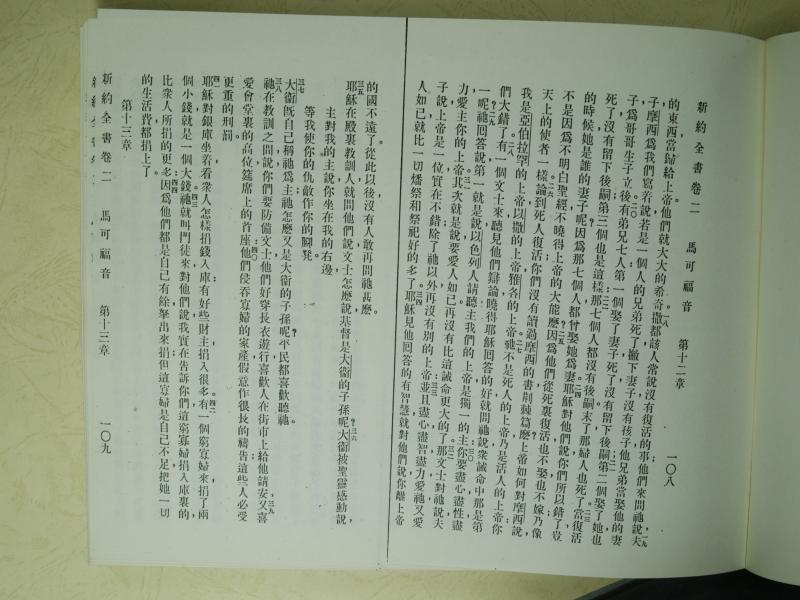 新約全書卷二　馬可福音　第十二章　一〇八
的東西當歸給上帝他們就大大的希奇一八撒都該人常說沒有復活的事他們來問祂說一九夫
子摩西爲我們寫着說若是一個人的兄弟死了撇下妻子沒有孩子他兄弟當娶他的妻
子爲哥哥生子立後二〇有弟兄七人第一個娶了妻子死了沒有留下後嗣二一第二個娶了她也
死了沒有留下後嗣第三個也是這樣二二那七個人都沒有後嗣末了那婦人也死了二三當復活
的時候她是誰的妻子呢因爲那七個人都曾娶她爲妻二四耶穌對他們說你們所以錯了豈
不是因爲不明白聖經不曉得上帝的大能麼二五因爲他們從死裏復活也不娶也不嫁乃像
天上的使者一樣二六論到死人復活你們沒有讀過摩西的書荊棘篇麼上帝如何對摩西說
我是亞伯拉罕的上帝以撒的上帝雅各的上帝二七祂不是死人的上帝乃是活人的上帝你
們大錯了二八有一個文士來聽見他們辯論曉得耶穌回答的好就問祂說衆誡命中那是第
一呢二九祂回答說第一就是說以色列人請聽主我們的上帝是獨一的主三〇你要盡心盡性盡
力愛主你的上帝三一其次就是說要愛人如己再沒有比這誡命更大的了三二那文士對祂說夫
子說上帝是一位實在不錯除了祂以外再沒有別的上帝三三並且盡心盡智盡力愛祂又愛
人如己就比一切燔祭和祭祀好的多了三四耶穌見他回答的有智慧就對他們說你離上帝
的國不遠了從此以後沒有人敢再問祂甚麼
三五耶穌在殿裏教訓人就問他們說文士怎麼說基督是大衞的子孫呢三六大衞被聖靈感動說
主對我的主說你坐在我的右邊
等我使你的仇敵作你的腳凳
三七大衞既自己稱祂爲主祂怎麼又是大衞的子孫呢平民都喜歡聽祂
三八祂在教訓之間說你們要防備文士他們好穿長衣遊行喜歡人在街市上給他請安三九又喜
愛會堂裏的高位筵席上的首座四〇他們侵吞寡婦的家產假意作很長的禱告這些人必受
更重的刑罰
四一耶穌對銀庫坐着看衆人怎樣捐錢入庫有好些財主捐入很多四二有一個窮寡婦來捐了兩
個小錢就是一個大錢四三祂就叫門徒來對他們說我實在告訴你們這窮寡婦捐入庫裏的
比衆人所捐的更多四四因爲他們都是自己有餘拏出來捐但這寡婦是自己不足把她一切
的生活費都捐上了
第十三章
新約全書卷二　馬可福音　第十三章　一〇九